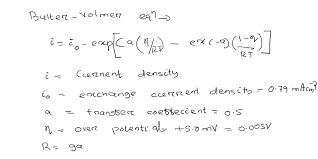 Butler-Volmer eqⁿ →
i = i₀ - exp[Ca(η/RT) - ex(-a)(1-η/RT)]
i = Current density
i₀ = exchange current density = 0.79 mAcm⁻²
a = transfer coefficient = 0.5
η = over potential +5.0mV = 0.005V
R = ga